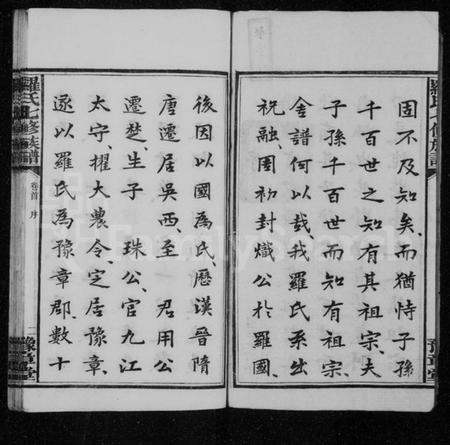 固不及知矣而猶恃子孫
千百世之知有其祖宗夫
子孫千百世而知有祖宗
舍譜何以哉我羅氏系出
祝融國初封熾公於羅國
後因以國為氏歷漢晉隋
唐遷居吳西至 君用公
遷楚生子 珠公官九江
太守擢大農令定居豫章
遂以羅氏為豫章郡數十
羅氏七修族譜
卷首 序
二
豫章堂
羅氏七修族譜
豫章堂